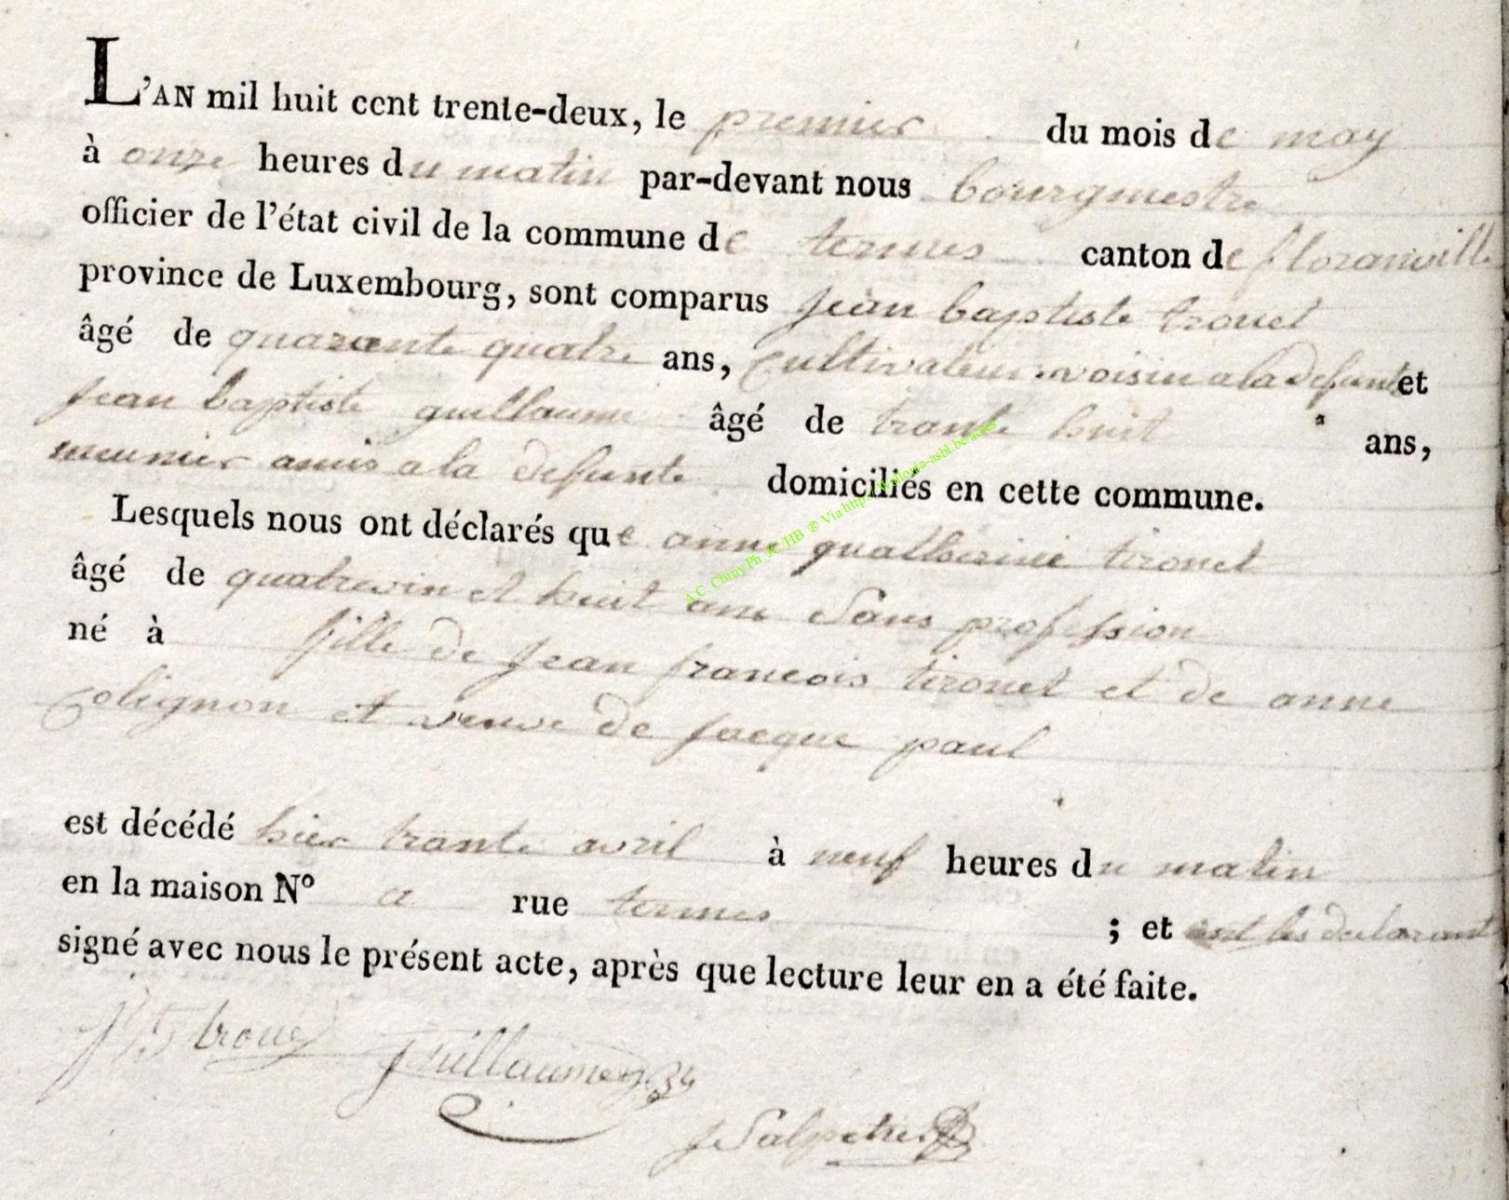 L'AN mil huit cent trente-deux, le premier du mois de may
à onze heures du matin par-devant nous bourgmestre
officier de l'état civil de la commune de termes canton de floranville
province de Luxembourg, sont comparus jean baptiste trouet
âgé de quarante quatre ans, Cultivateur voisin a la defunte et
jean baptiste guillaume âgé de trante huit ans,
meunier amis a la defunte domiciliés en cette commune.
Lesquels nous ont déclarés que anne quatherine tironet
âgé de quatrevin et huit ans Sans profession
né à fille de jean francois tironet et de anne
Colignon et veuve de jacque paul
est décédé hier trante avril à neuf heures du matin
en la maison N° a rue termes ; et ont les declarant
signé avec nous le présent acte, après que lecture leur en a été faite.
trouet guillaume
J Salpetier
A.C. Chiny Ph JC HB ® Via